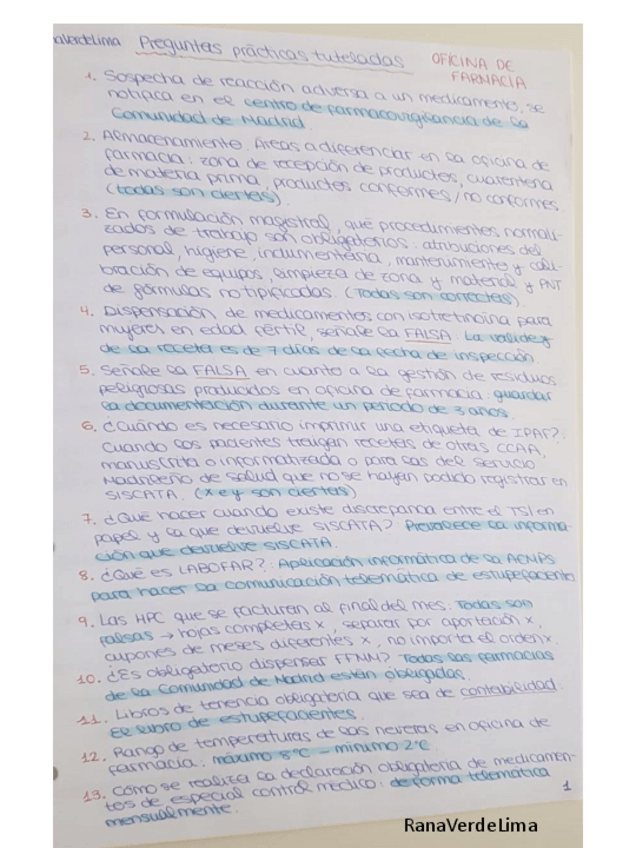 RanaVerdeLima Preguntas prácticas tuteladas OFICINA DE FARMACIA
1. Sospecha de reacción adversa a un medicamento, se
notifica en el centro de farmacovigilancia de la
Comunidad de Madrid.
2. Almacenamiento. Áreas a diferenciar en la oficina de
farmacia: zona de recepción de productos, cuarentena
de materia prima, productos conformes/no conformes
(todas son ciertas).
3. En formulación magistral, qué procedimientos normali-
zados de trabajo son obligatorios: atribuciones del
personal, higiene, indumentaria, mantenimiento y cali-
bración de equipos, limpieza de zona y material y PNT
de fórmulas no tipificadas. (Todas son correctas).
4. Dispensación de medicamentos con isotretinoína para
mujeres en edad fértil, señale la FALSA: La validez
de la receta es de 7 días de la fecha de inspección.
5. Señale la FALSA en cuanto a la gestión de residuos
peligrosos producidos en oficina de farmacia: guardar
la documentación durante un periodo de 3 años.
6. ¿Cuándo es necesario imprimir una etiqueta de IPAF?:
Cuando los pacientes traigan recetas de otras CCAA,
manuscrita o informatizada o para las del servicio
Madrileño de salud que no se hayan podido registrar en
SISCATA. (x e y son ciertas)
7. ¿Qué hacer cuando existe discrepancia entre el TSI en
papel y la que devuelve SISCATA? Prevalece la informa-
ción que devuelve SISCATA.
8. ¿Qué es LABOFAR?: Aplicación informática de la ACNPS
para hacer la comunicación telemática de estupefaciente
9. Las HPC que se facturan al final del mes: Todas son
falsas → hojas completas x, separar por aportación x,
cupones de meses diferentes x, no importa el orden x.
10. ¿Es obligatorio dispensar FFNN? Todas las farmacias
de la Comunidad de Madrid están obligadas.
11. Libros de tenencia obligatoria que sea de contabilidad:
El libro de estupefacientes.
12. Rango de temperaturas de las neveras en oficina de
farmacia: máximo 8°C - mínimo 2°C
13. Cómo se realiza la declaración obligatoria de medicamen-
tos de especial control médico: de forma telemática
mensualmente.
1
RanaVerdeLima